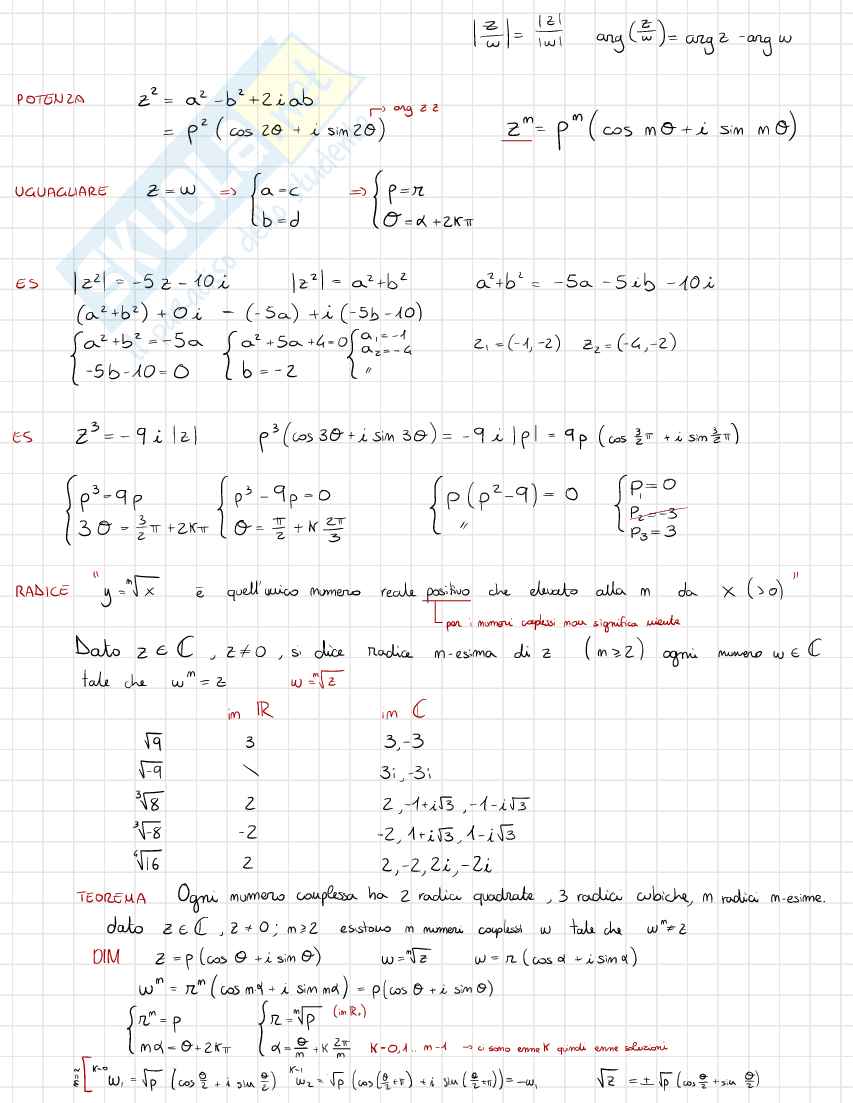 |z/w| = |z|/|w| arg(z/w) = arg z - arg w
POTENZA z² = a² - b² + 2iab
→ arg z z
= ρ² (cos 2θ + i sin 2θ) zⁿ = ρⁿ (cos nθ + i sin nθ)
UGUAGLIARE z = w ⇒ { a = c b = d ⇒ { ρ = r θ = α + 2kπ
ES |z²| = -5z - 10i |z²| = a² + b² a² + b² = -5a - 5ib - 10i
(a² + b²) + 0i - (-5a) + i(-5b - 10)
{ a² + b² = -5a { a² + 5a + 4 = 0 { a₁ = -1 a₂ = -4 z₁ = (-1, -2) z₂ = (-4, -2)
-5b - 10 = 0 b = -2 "
ES z³ = -9i |z| ρ³ (cos 3θ + i sin 3θ) = -9i |ρ| = 9ρ (cos 3/2 π + i sin 3/2 π)
{ ρ³ = 9ρ { ρ³ - 9ρ = 0 { ρ(ρ² - 9) = 0 { ρ₁ = 0
3θ = 3/2 π + 2kπ θ = π/2 + k 2π/3 " ρ₂ = -3
ρ₃ = 3
RADICE "y = ⁿ√x è quell'unico numero reale positivo che elevato alla n da x (>0)"
per i numeri complessi non significa niente
Dato z ∈ ℂ, z ≠ 0, si dice radice n-esima di z (n ≥ 2) ogni numero w ∈ ℂ
tale che wⁿ = z w = ⁿ√z
in ℝ in ℂ
√9 3 3, -3
√-9 \ 3i, -3i
³√8 2 2, -1+i√3, -1-i√3
³√-8 -2 -2, 1+i√3, 1-i√3
⁴√16 2 2, -2, 2i, -2i
TEOREMA Ogni numero complesso ha 2 radici quadrate, 3 radici cubiche, n radici n-esime.
dato z ∈ ℂ, z ≠ 0; n ≥ 2 esistono n numeri complessi w tale che wⁿ = z
DIM z = ρ (cos θ + i sin θ) w = ⁿ√z w = r (cos α + i sin α)
wⁿ = rⁿ (cos nα + i sin nα) = ρ (cos θ + i sin θ)
{ rⁿ = ρ { r = ⁿ√ρ (in ℝ+)
nα = θ + 2kπ α = θ/n + k 2π/n k = 0, 1.. n-1 → ci sono enne k quindi enne soluzioni
n=2 [ k=0 w₁ = √ρ (cos θ/2 + i sin θ/2) k=1 w₂ = √ρ (cos(θ/2 + π) + i sin(θ/2 + π)) = -w₁ √z = ± √ρ (cos θ/2 + sin θ/2)
SKUOLA.net
il paradiso dello studente